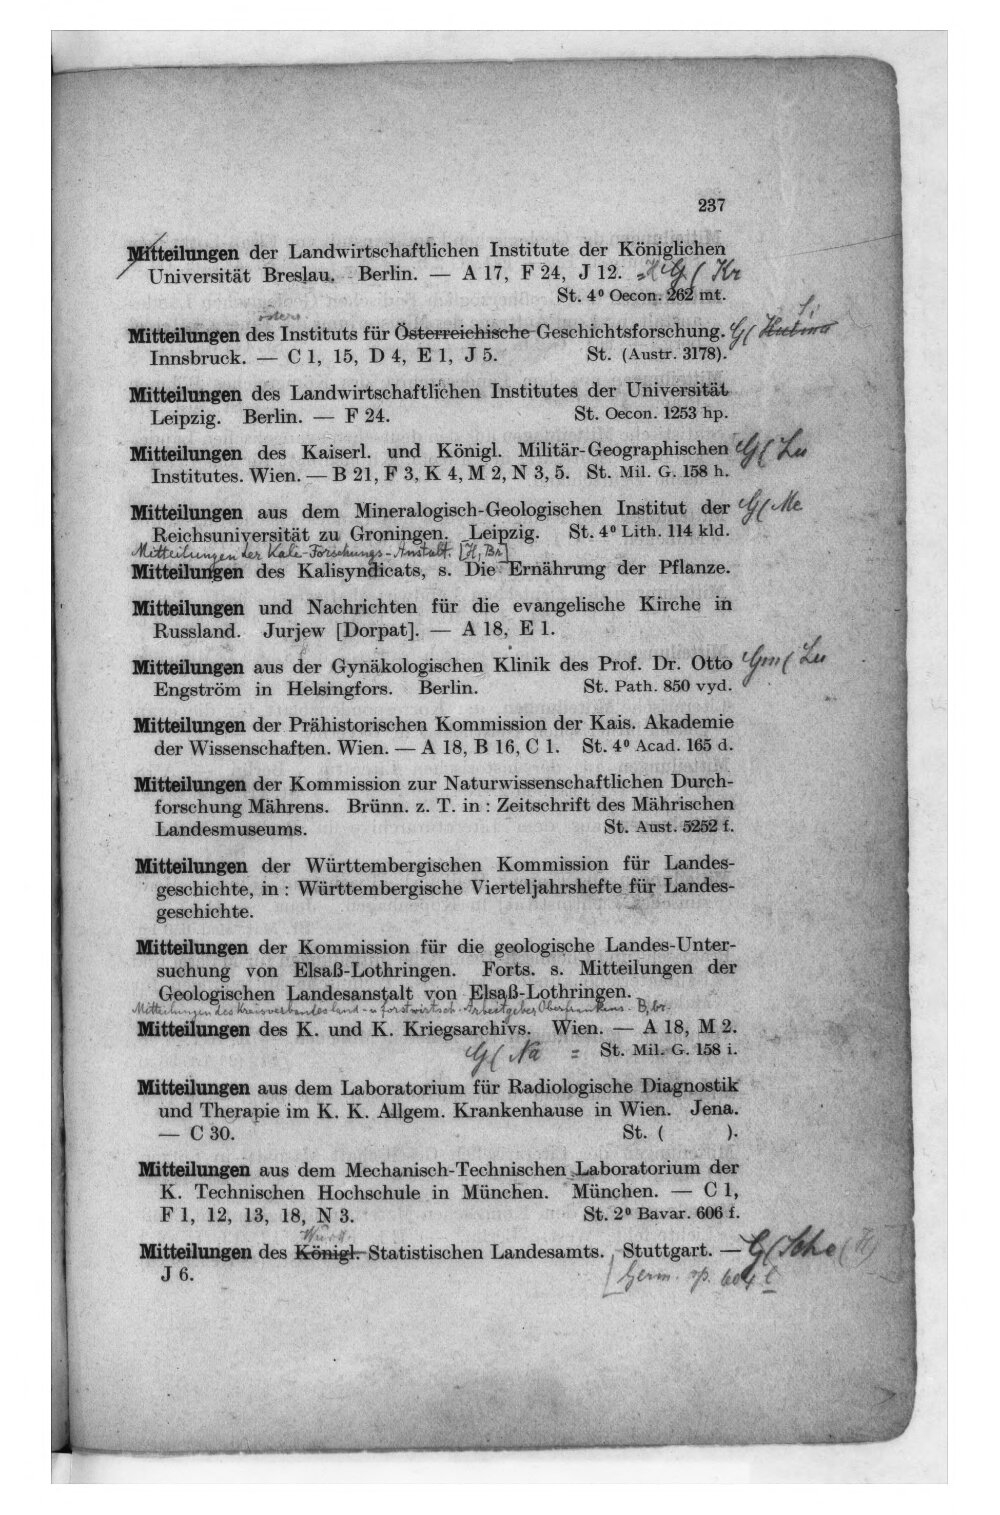 237
Mitteilungen der Landwirtschaftlichen Institute der Königlichen
Universität Breslau. Berlin. — A 17, F 24, J 12. G ( Kr
St. 4⁰ Oecon. 262 mt.
österr.
Mitteilungen des Instituts für Österreichische Geschichtsforschung. G (
Innsbruck. — C 1, 15, D 4, E 1, J 5. St. (Austr. 3178).
Mitteilungen des Landwirtschaftlichen Institutes der Universität
Leipzig. Berlin. — F 24. St. Oecon. 1253 hp.
Mitteilungen des Kaiserl. und Königl. Militär-Geographischen G ( Lu
Institutes. Wien. — B 21, F 3, K 4, M 2, N 3, 5. St. Mil. G. 158 h.
Mitteilungen aus dem Mineralogisch-Geologischen Institut der G ( Me
Reichsuniversität zu Groningen. Leipzig. St. 4⁰ Lith. 114 kld.
Mitteilungen der Kali-Forschungs-Anstalt. [H, Br]
Mitteilungen des Kalisyndicats, s. Die Ernährung der Pflanze.
Mitteilungen und Nachrichten für die evangelische Kirche in
Russland. Jurjew [Dorpat]. — A 18, E 1.
Mitteilungen aus der Gynäkologischen Klinik des Prof. Dr. Otto Gm ( Lu
Engström in Helsingfors. Berlin. St. Path. 850 vyd.
Mitteilungen der Prähistorischen Kommission der Kais. Akademie
der Wissenschaften. Wien. — A 18, B 16, C 1. St. 4⁰ Acad. 165 d.
Mitteilungen der Kommission zur Naturwissenschaftlichen Durch-
forschung Mährens. Brünn. z. T. in : Zeitschrift des Mährischen
Landesmuseums. St. Aust. 5252 f.
Mitteilungen der Württembergischen Kommission für Landes-
geschichte, in : Württembergische Vierteljahrshefte für Landes-
geschichte.
Mitteilungen der Kommission für die geologische Landes-Unter-
suchung von Elsaß-Lothringen. Forts. s. Mitteilungen der
Geologischen Landesanstalt von Elsaß-Lothringen.
Mitteilungen des Kreisverbandes land- u forstwirtsch. Arbeitgeber Oberfrankens.
Mitteilungen des K. und K. Kriegsarchivs. Wien. — A 18, M 2.
G ( Na = St. Mil. G. 158 i.
Mitteilungen aus dem Laboratorium für Radiologische Diagnostik
und Therapie im K. K. Allgem. Krankenhause in Wien. Jena.
— C 30. St. ( ).
Mitteilungen aus dem Mechanisch-Technischen Laboratorium der
K. Technischen Hochschule in München. München. — C 1,
F 1, 12, 13, 18, N 3. St. 2⁰ Bavar. 606 f.
Württ.
Mitteilungen des Königl. Statistischen Landesamts. Stuttgart. — G ( Sche
J 6. Germ. sp. 604 l